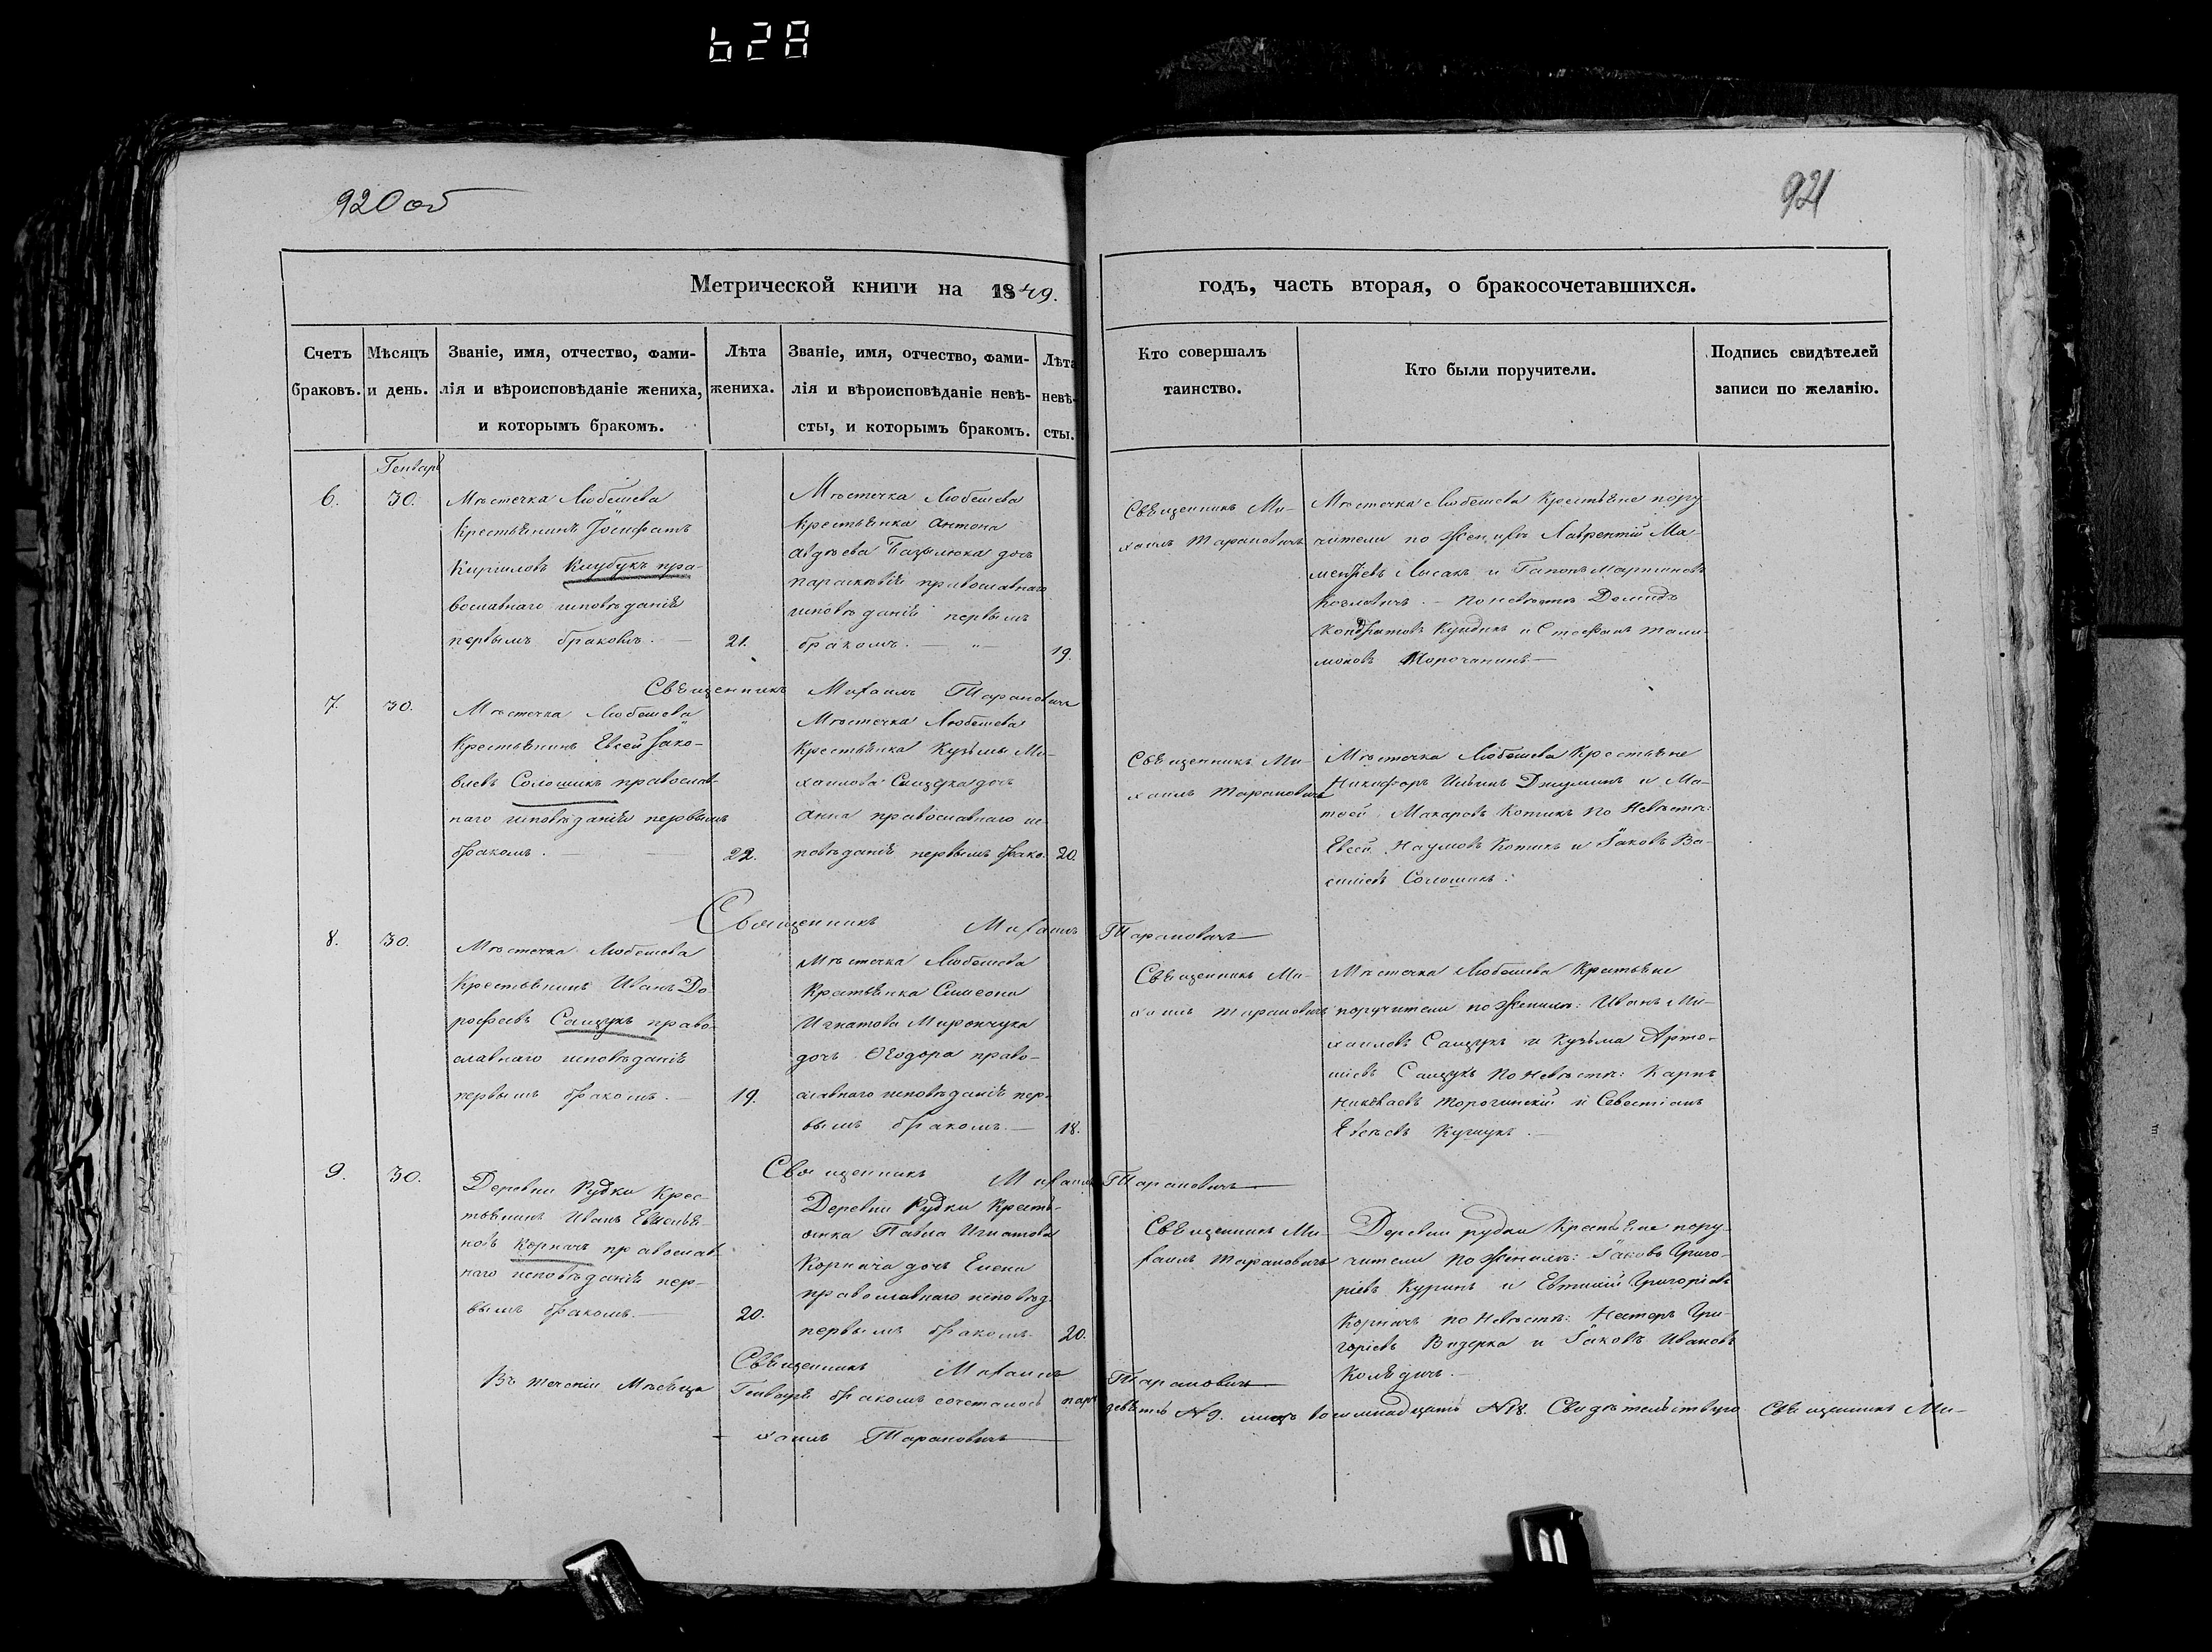 628
920 об
921
Метрической книги на 1849.
годъ, часть вторая, о бракосочетавшихся.
Счетъ
браковъ.
Мѣсяцъ
и день.
Званіе, имя, отчество, фами-
лія и вѣроисповѣданіе жениха,
и которымъ бракомъ.
Лѣта
жениха.
Званіе, имя, отчество, фами-
лія и вѣроисповѣданіе невѣ-
сты, и которымъ бракомъ.
Лѣта
невѣ-
сты.
Кто совершалъ
таинство.
Кто были поручители.
Подпись свидѣтелей
записи по желанію.
Генварь
6.
30.
Мѣстечка Любешева
Крестьянинъ Іосифатъ
Кирилловъ Клубукъ пра-
вославнаго исповѣданія
первымъ бракомъ. —
21.
Мѣстечка Любешева
Крестьянка Антона
Авдѣева Базылюка дочь
Параскевія православнаго
исповѣданія первымъ
бракомъ. — " —
19.
Священникъ Ми-
хаилъ Тарановичъ
Мѣстечка Любешева Крестьяне пору
чители по Женихѣ Лаврентій Ма-
Лисакъ и Гапонъ Мартиновъ
Козловичъ. — По невѣстѣ Демидъ
Кондратовъ Кундикъ и Стефанъ
Морочанинъ —
Священникъ Михаилъ Тарановичъ
7.
30.
Мѣстечка Любешева
Крестьянинъ Евсей Іако-
влевъ Солошикъ православ-
наго исповѣданія первымъ
бракомъ. — —
22.
Мѣстечка Любешева
Крестьянка Кузьмы Ми-
хаилова Самцука дочь
Анна православнаго ис-
повѣданія первымъ брако.
20.
Священникъ Ми-
хаилъ Тарановичъ
Мѣстечка Любешева Крестьяне
Никифоръ Ильинъ и Ма-
твей Макаровъ Котикъ По Невѣстѣ:
Евсей Наумовъ Котикъ и Іаковъ Ва-
силіевъ Солошикъ.
Священникъ Михаилъ Тарановичъ
8.
30.
Мѣстечка Любешева
Крестьянинъ Иванъ До-
рофѣевъ Самцукъ право-
славнаго исповѣданія
первымъ бракомъ. —
19.
Мѣстечка Любешева
Крестьянка Симеона
Игнатова Мирончука
дочь Ѳеодора право-
славнаго исповѣданія пер-
вымъ бракомъ. —
18.
Священникъ Ми-
хаилъ Тарановичъ
Мѣстечка Любешева Крестьяне
поручители по Женихѣ: Иванъ Ми-
хаиловъ Самцукъ и Кузьма Арте-
міевъ Самцукъ По Невѣстѣ: Карпъ
Николаевъ и Севастіанъ
Евсѣевъ —
Священникъ Михаилъ Тарановичъ
9.
30.
Деревни Рудки Крес-
тьянинъ Иванъ Емелья-
новъ Корначъ православ-
наго исповѣданія пер-
вымъ бракомъ. —
20.
Деревни Рудки Кресть-
янка Павла Игнатова
Корнача дочь Елена
православнаго исповѣд.
первымъ бракомъ.
20.
Священникъ Ми-
хаилъ Тарановичъ
Деревни Рудки Крестьяне пору-
чители по Женихѣ: Іаковъ Григо-
ріевъ Куринъ и Евтихій Григоріевъ
Корначъ по Невѣстѣ: Несторъ Гри-
горіевъ Видерка и Іаковъ Ивановъ
Колядичъ. —
Священникъ Михаилъ Тарановичъ
Въ теченіи Мѣсяца Генваря бракомъ сочеталось паръ девять №9. лицъ восемнадцать №18. Свидѣтельствую Священникъ Ми-
хаилъ Тарановичъ